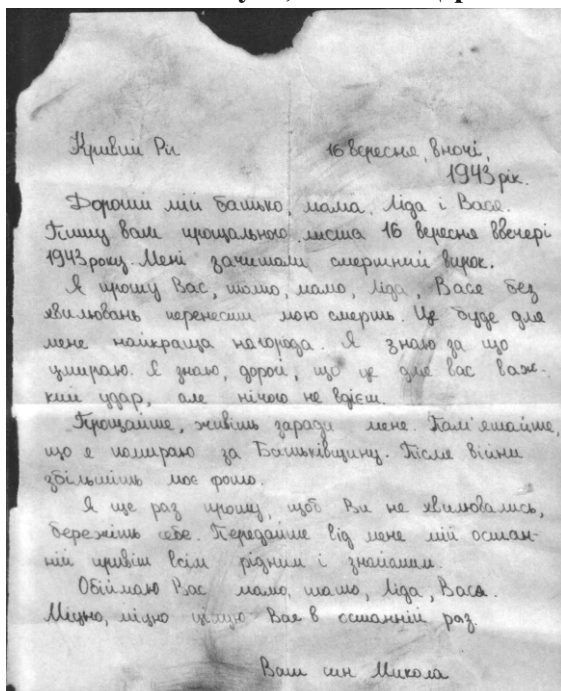 Кривий Ріг 16 вересня, вночі,
1943 рік.
Дорогий мій батько, мама, Ліда і Вася.
Пишу вам прощального листа 16 вересня ввечері
1943 року. Мені зачитали смертний вирок.
Я прошу Вас, тато, мамо, Ліда, Вася без
хвилювань перенести мою смерть. Це буде для
мене найкраща нагорода. Я знаю за що
умираю. Я знаю, дорогі, що це для вас важ-
кий удар, але нічого не вдієш.
Прощайте, живіть заради мене. Пам'ятайте,
що я помираю за Батьківщину. Після війни
збільшіть моє фото.
Я ще раз прошу, щоб Ви не хвилювались,
бережіть себе. Передайте від мене мій остан-
ній привіт всім рідним і знайомим.
Обіймаю Вас мамо, тато, Ліда, Вася.
Міцно, міцно цілую Вас в останній раз
Ваш син Микола